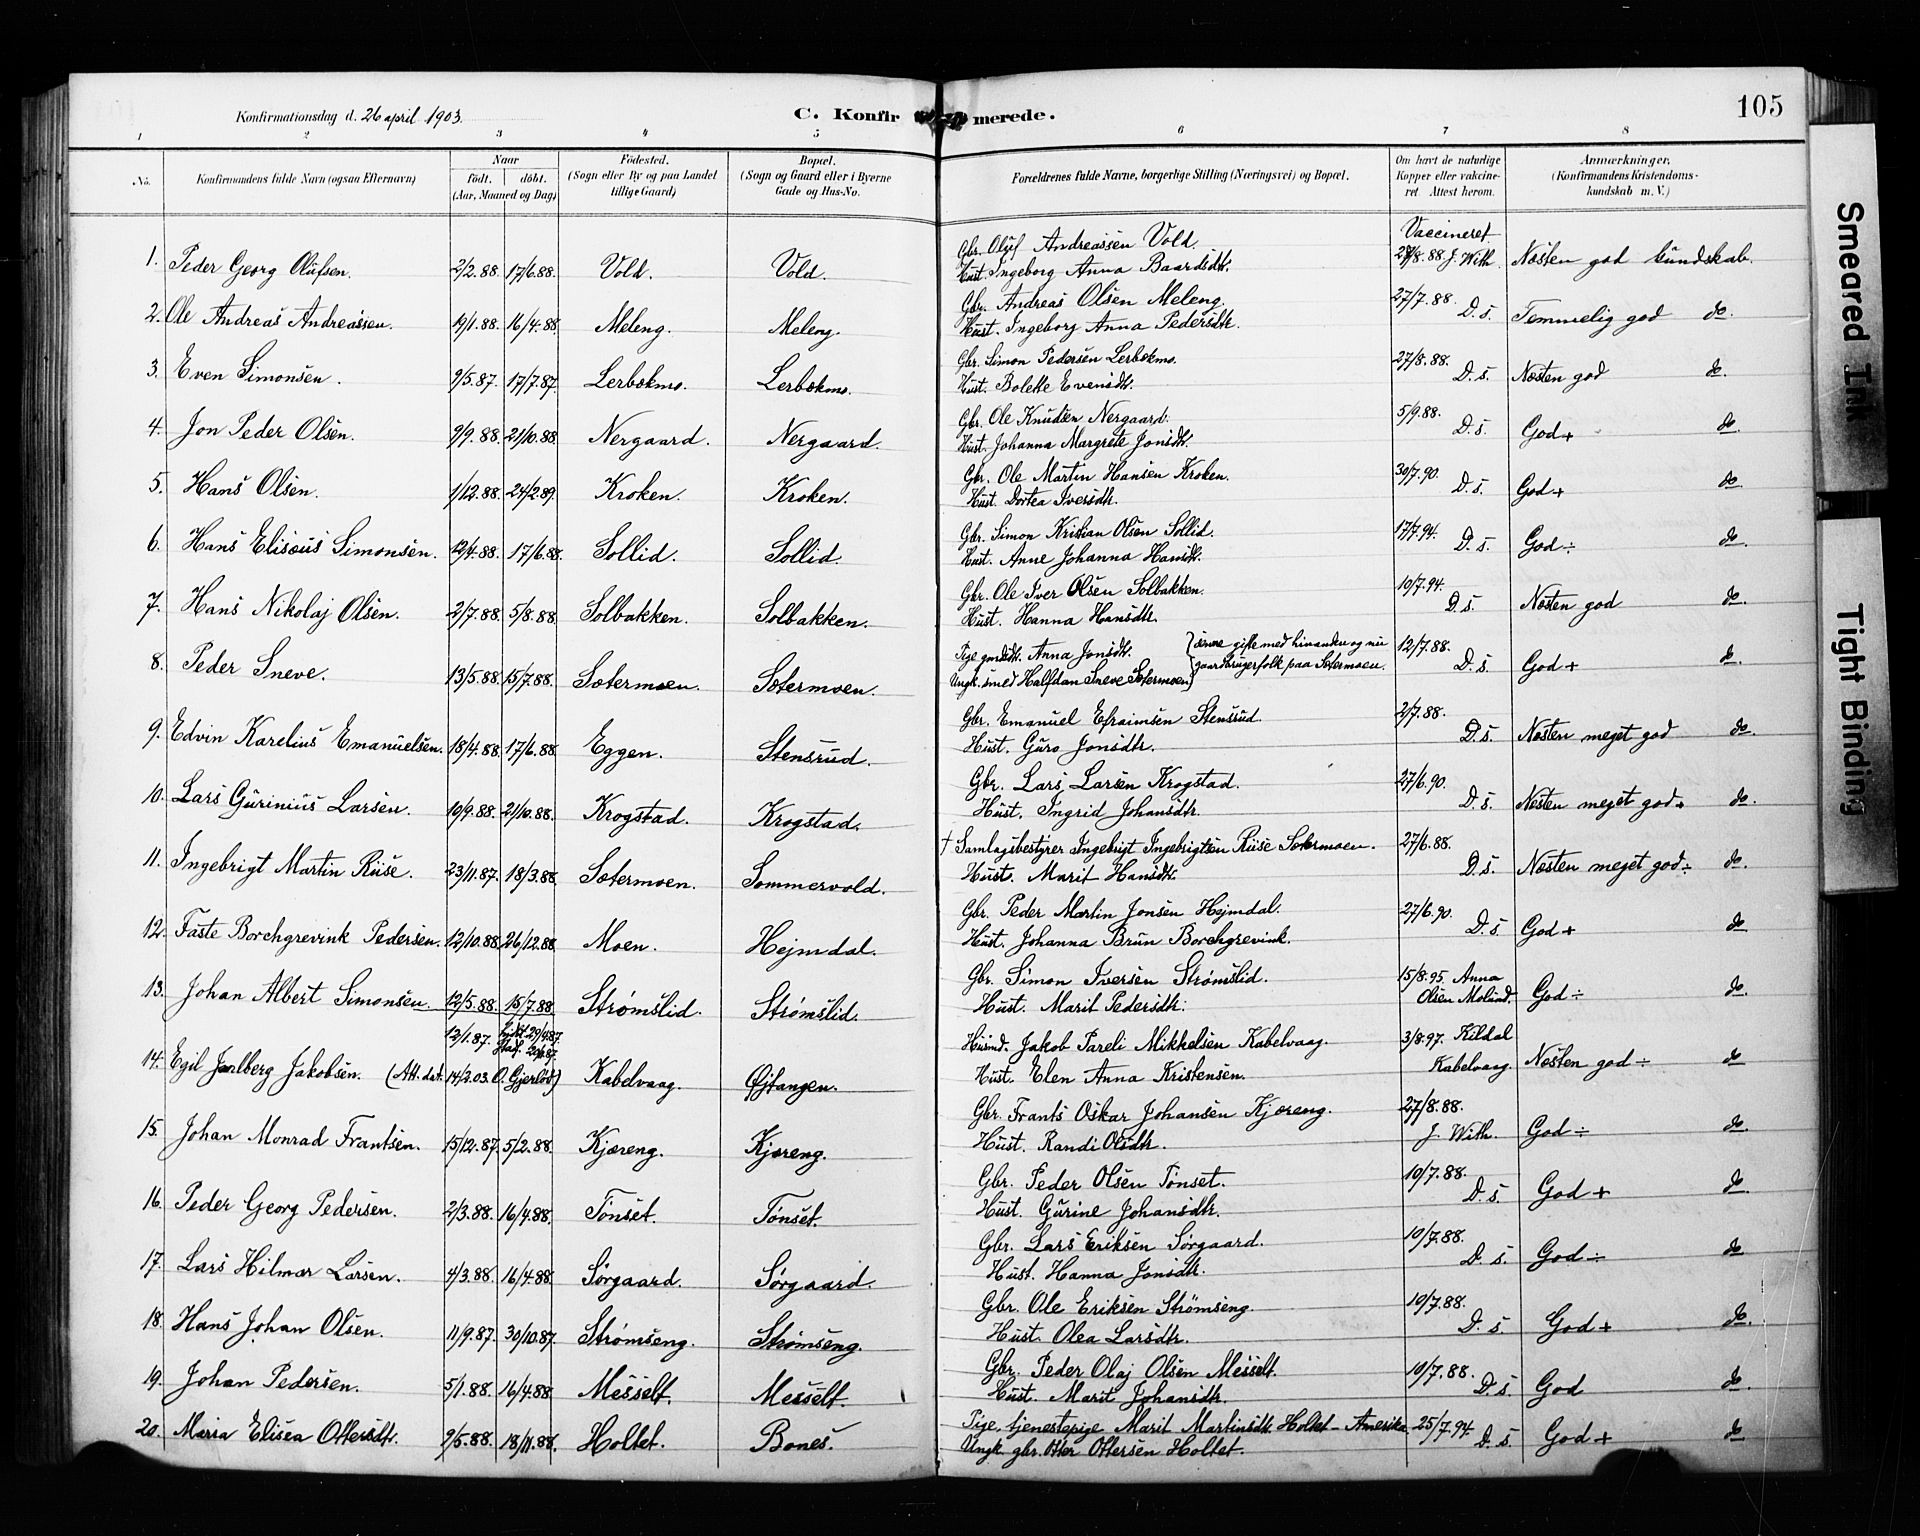 Konfirmationsdag d. 26 april 1903.
C. Konfirmerede.
105
1 2 3 4 5 6 7 8
No.
Konfirmandens fulde Navn (ogsaa Efternavn)
Naar
födt. döbt.
(Aar, Maaned og Dag)
Födested.
(Sogn eller By og paa Landet
tillige Gaard)
Bopæl.
(Sogn og Gaard eller i Byerne
Gade og Hus-No.
Forældrenes fulde Navne, borgerlige Stilling (Næringsvei) og Bopæl.
Om havt de naturlige
Kopper eller vakcine-
ret. Attest herom.
Anmærkninger,
(Konfirmandens Kristendoms-
kundskab m. V.)
Vaccineret
1. Peder Georg Olufsen. 2/2.88. 17/6.88. Vold. Vold. Gbr. Oluf Andreassen Vold. 27/8.88. J. With. Næsten god kundskab.
Hust. Ingeborg Anna Baardsdtr.
2. Ole Andreas Andreassen. 19/1.88. 16/4.88. Meleng. Meleng. Gbr. Andreas Olsen Meleng. 27/7.88. D.s. Temmelig god do.
Hust. Ingeborg Anna Pedersdtr.
3. Even Simonsen. 9/5.87. 17/7.87. Lerbækmo. Lerbækmo. Gbr. Simon Pedersen Lerbækmo. 27/8.88. D.s. Næsten god do.
Hust. Bolette Evensdt.
4. Jon Peder Olsen. 9/9.88. 21/10.88. Nergaard. Nergaard. Gbr. Ole Knudsen Nergaard. 5/9.88. D.s. God+ do.
Hust. Johanna Margrete Jonsdt.
5. Hans Olsen. 1/12.88. 24/2.89. Kroken. Kroken. Gbr. Ole Martin Hansen Kroken. 30/7.90. D.s. God+ do.
Hust. Dortea Iversdtr.
6. Hans Elisæus Simonsen. 12/4.88. 17/6.88. Sollid. Sollid. Gbr. Simon Kristian Olsen Sollid. 17/7.94. D.s. God÷ do.
Hust. Anne Johanna Hansdt.
7. Hans Nikolaj Olsen. 2/7.88. 5/8.88. Solbakken. Solbakken. Gbr. Ole Iver Olsen Solbakken. 10/7.94. D.s. Næsten god do.
Hust. Hanna Hansdtr.
8. Peder Sneve. 13/5.88. 15/7.88. Sætermoen. Sætermoen. Pige Anna Jonsdt. gifte med hinanden og nu 12/7.88. D.s. God+ do.
Ungk. Halfdan Sneve Sætermoen gaardbrugerfolk paa Sætermoen.
9. Edvin Karelius Emanuelsen. 18/4.88. 17/6.88. Eggen. Stensrud. Gbr. Emanuel Efraimsen Stensrud. 2/7.88. D.s. Næsten meget god do.
Hust. Guro Jonsdtr.
10. Lars Gurinius Larsen. 10/9.88. 21/10.88. Krogstad. Krogstad. Gbr. Lars Larsen Krogstad. 27/6.90. D.s. Næsten meget god+ do.
Hust. Ingrid Johansdtr.
11. Ingebrigt Martin Riise. 23/11.87. 18/3.88. Sætermoen. Sommervold. † Samlagsbestyrer Ingebrigt Ingebrigtsen Riise Sætermoen. 27/6.88. D.s. Næsten meget god÷ do.
Hust. Marit Hansdtr.
12. Faste Borchgrevink Pedersen. 12/10.88. 26/12.88. Moen. Hejmdal. Gbr. Peder Martin Jonsen Hejmdal. 27/6.90. D.s. God+ do
Hust. Johanna Brun Borchgrevink.
13. Johan Albert Simonsen. 12/5.88. 15/7.88. Strømslid. Strømslid. Gbr. Simon Iversen Strømslid. 15/8.95. Anna God÷ do.
Hust. Marit Pedersdtr. Olsen Molund.
12/1.87. 29/4.87.
14. Egil Jarlberg Jakobsen. (Att. dat. 14/2.03. O. Gjerløv) Kabelvaag. Øjtangen. Husmd. Jakob Pareli Mikkelsen Kabelvaag. 3/8.97. Kildal Næsten god÷ do
Hust. Elen Anna Kristensen. Kabelvaag
15. Johan Monrad Frantsen. 15/12.87. 5/2.88. Kjæreng. Kjæreng. Gbr. Frants Oskar Johansen Kjæreng. 27/8.88. God÷ do.
Hust. Randi Olsdtr. J. With.
16. Peder Georg Pedersen. 2/3.88. 16/4.88. Tønset. Tønset. Gbr. Peder Olsen Tønset. 10/7.88. D.s. God+ do.
Hust. Gurine Johansdtr.
17. Lars Hilmar Larsen. 4/3.88. 16/4.88. Sørgaard. Sørgaard. Gbr. Lars Eriksen Sørgaard. 10/7.88. D.s. God÷ do
Hust. Hanna Jonsdtr.
18. Hans Johan Olsen. 11/9.87. 30/10.87. Strømseng. Strømseng. Gbr. Ole Eriksen Strømseng. 10/7.88. D.s. God+ do.
Hust. Olea Larsdtr.
19. Johan Pedersen. 5/1.88. 16/4.88. Messelt. Messelt. Gbr. Peder Olaj Olsen Messelt. 10/7.88. D.s. God do.
Hust. Marit Johansdtr.
20. Maria Elisea Ottersdt. 9/5.88. 18/11.88. Holtet. Bones. Pige, tjenestepige Marit Martinsdt. Holtet - Amerika. 25/7.94. D.s. God+ do
Ungk. gbr. Otter Ottersen Holtet.
Smeared Ink
Tight Binding